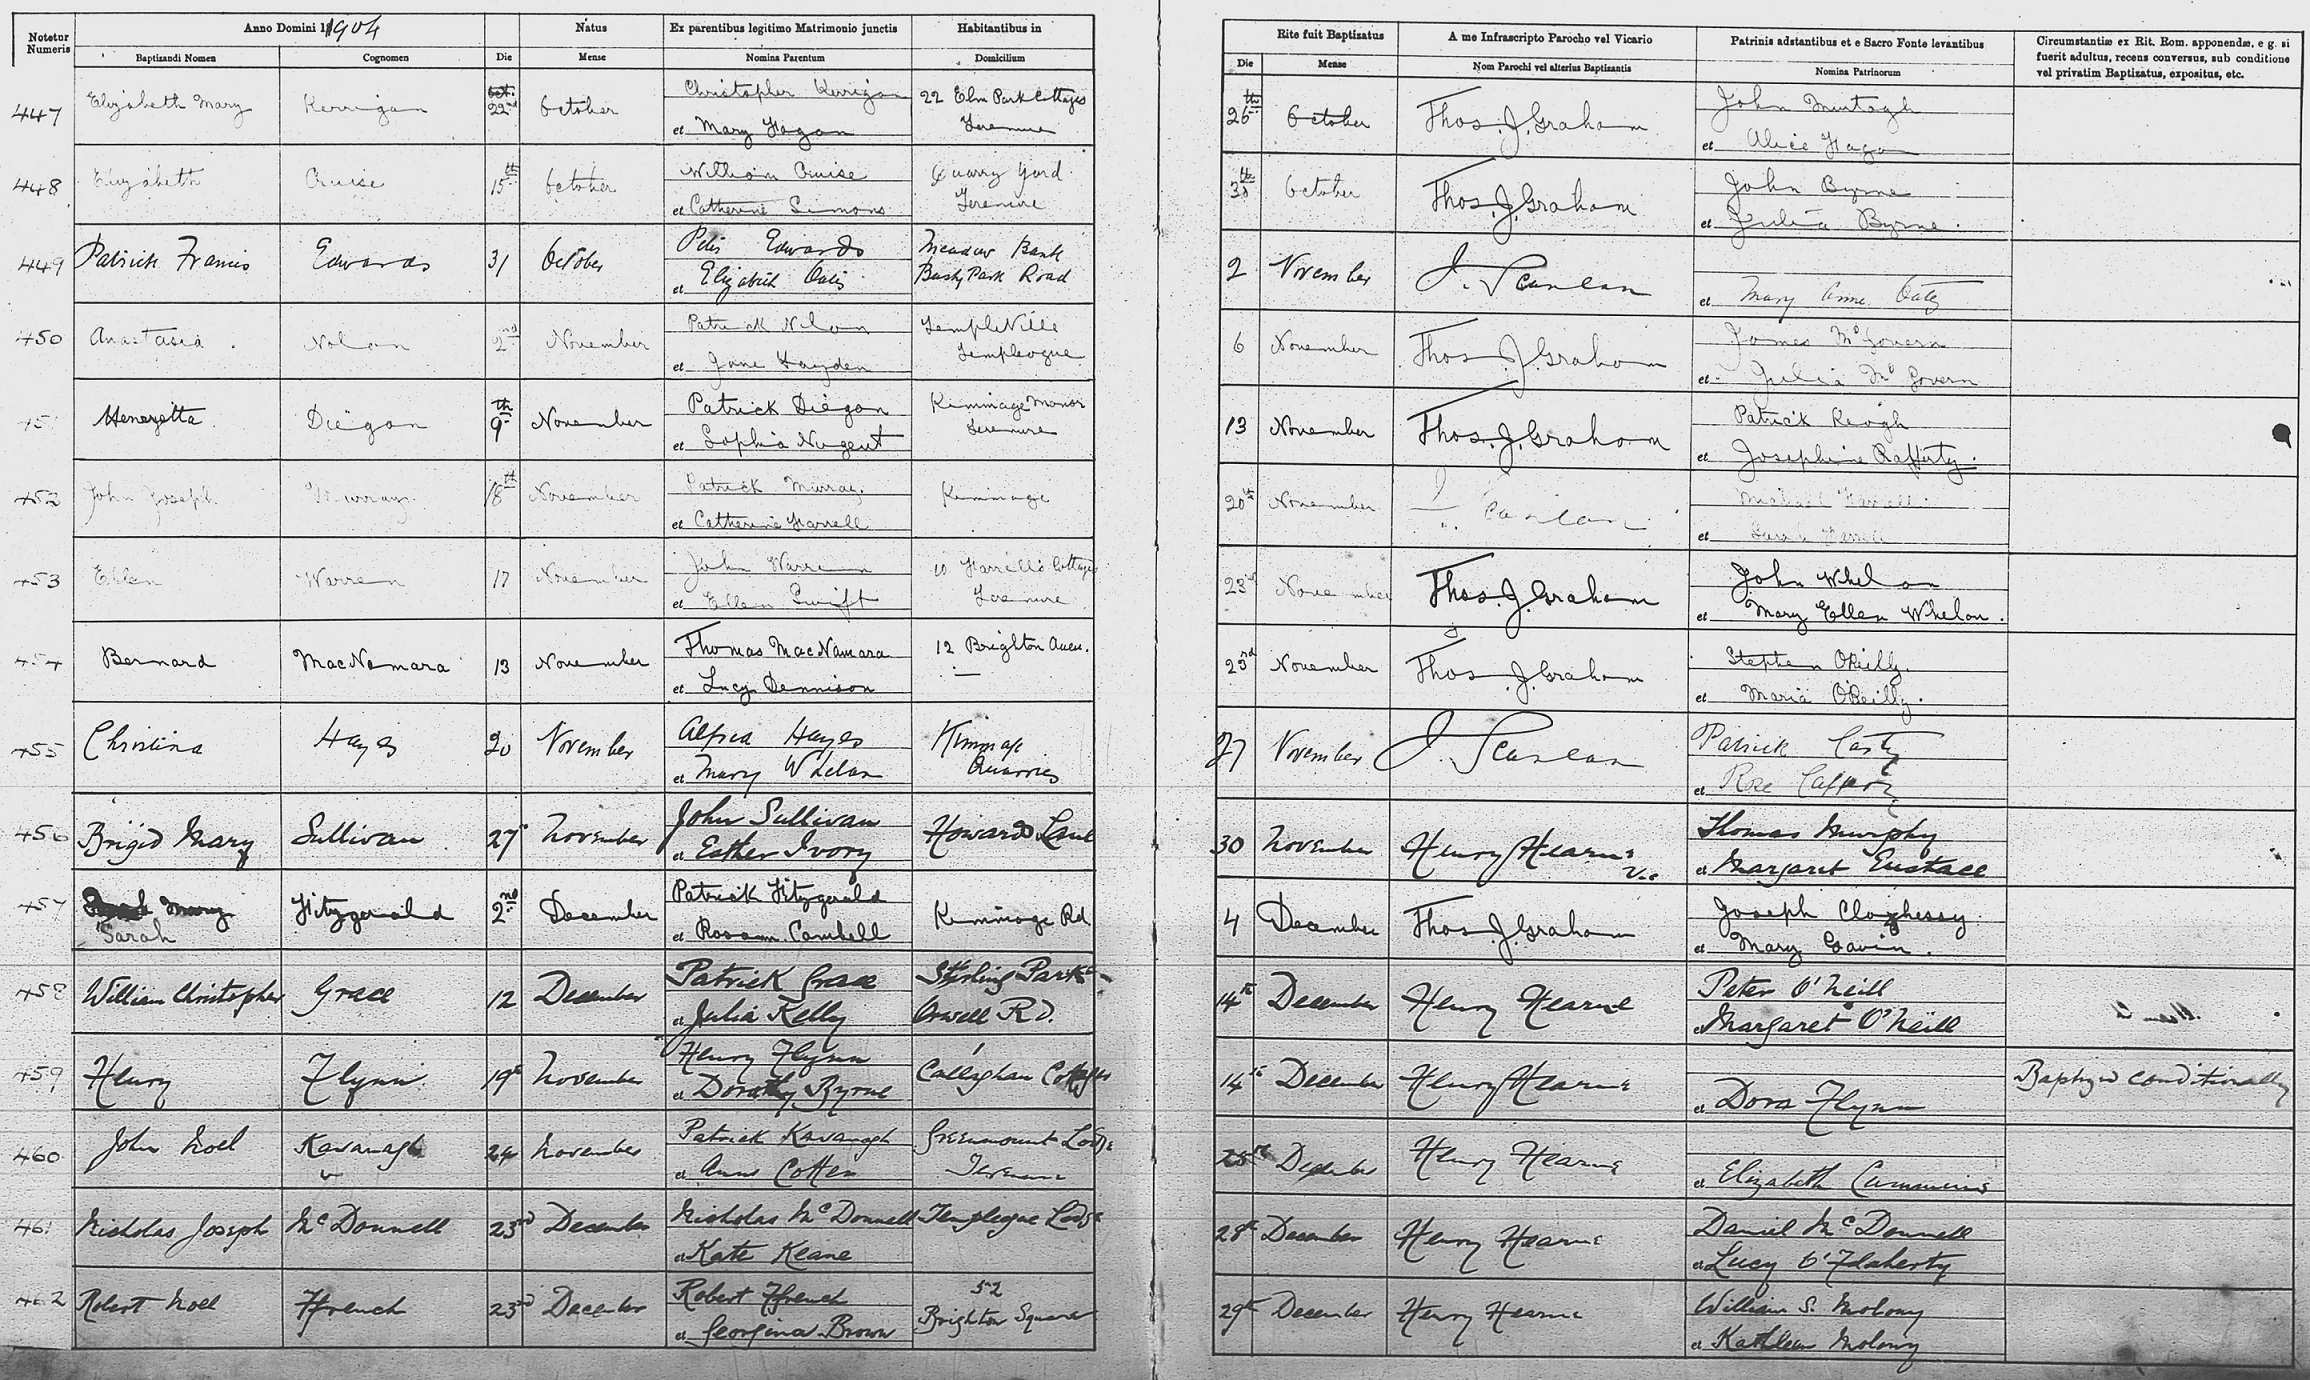 Notetur Numeris
Anno Domini 1904
Baptizandi Nomen
Cognomen
Natus
Die
Mense
Ex parentibus legitimo Matrimonio junctis
Nomina Parentum
Habitantibus in
Domicilium
Rite fuit Baptizatus
Die
Mense
A me Infrascripto Parocho vel Vicario
Nom Parochi vel alterius Baptizantis
Patrinis adstantibus et e Sacro Fonte levantibus
Nomina Patrinorum
Circumstantiæ ex Rit. Rom. apponendæ, e g. si
fuerit adultus, recens conversus, sub conditione
vel privatim Baptizatus, expositus, etc.
447 Elizabeth Mary Kerrigan 22nd October Christopher Kerrigan 22 Elm Park Cottages
et Mary Fagan Terenure
26th October Thos. J. Graham John Murtagh
et Alice Fagan
448 Elizabeth Cruise 15th October William Cruise Quarry Yard
et Catherine Simons Terenure
30th October Thos. J. Graham John Byrne
et Julia Byrne.
449 Patrick Francis Edwards 31 October Peter Edwards Meadow Bank
et Elizabeth Oates Bushy Park Road
2 November J. Scanlan
et Mary Anne Oates
450 Anastasia Nolan 2nd November Patrick Nolan TempleVille
et Jane Hayden Templeogue
6 November Thos. J. Graham James McGovern
et Julia McGovern
451 Heneretta Diegan 9th November Patrick Diegan Kimmage Manor
et Sophia Nugent Terenure
13 November Thos. J. Graham Patrick Keogh
et Josephine Rafferty.
452 John Joseph Murray 18th November Patrick Murray. Kimmage
et Catherine Farrell
20th November J. Scanlan Michael Farrell
et Sarah Farrell
453 Ellen Warren 17 November John Warren 10 Farrell's Cottages
et Ellen Swift Terenure
23rd November Thos. J. Graham John Whelan
et Mary Ellen Whelan.
454 Bernard MacNamara 13 November Thomas MacNamara 12 Brighton Aven.
et Lucy Dennison
23rd November Thos. J. Graham Stephen O'Reilly.
et Maria O'Reilly.
455 Christina Hayes 20 November Alfred Hayes Kimmage
et Mary Whelan Quarries
27 November J. Scanlan Patrick
et Rose
456 Brigid Mary Sullivan 27 November John Sullivan Howards Lane
et Esther Ivory
30 November Henry Hearne Thomas Murphy
et Margaret Eustace
457 Mary Fitzgerald 2nd December Patrick Fitzgerald Kimmage Rd
Sarah et Rosann Cambell
4 December Thos. J. Graham Joseph Cloghessy
et Mary Gavin.
458 William Christopher Grace 12 December Patrick Grace Stirling Park
et Julia Kelly Orwell Rd.
14th December Henry Hearne Peter O'Neill
et Margaret O'Neill
459 Henry Flynn 19th November Henry Flynn Callaghan Cottages
et Dorothy Byrne
14th December Henry Hearne
et Dora Flynn
Baptized conditionally
460 John Noel Kavanagh 24 November Patrick Kavanagh Greenmount Lodge
et Anne Cotter Terenure
25th December Henry Hearne
et Elizabeth Cummins
461 Nicholas Joseph McDonnell 23rd December Nicholas McDonnell Templeogue Lodge
et Kate Keane
28th December Henry Hearne Daniel McDonnell
et Lucy O'Flaherty
462 Robert Noel Ffrench 23rd December Robert Ffrench 52
et Georgina Brown Brighton Square
29th December Henry Hearne William S. Molony
et Kathleen Molony